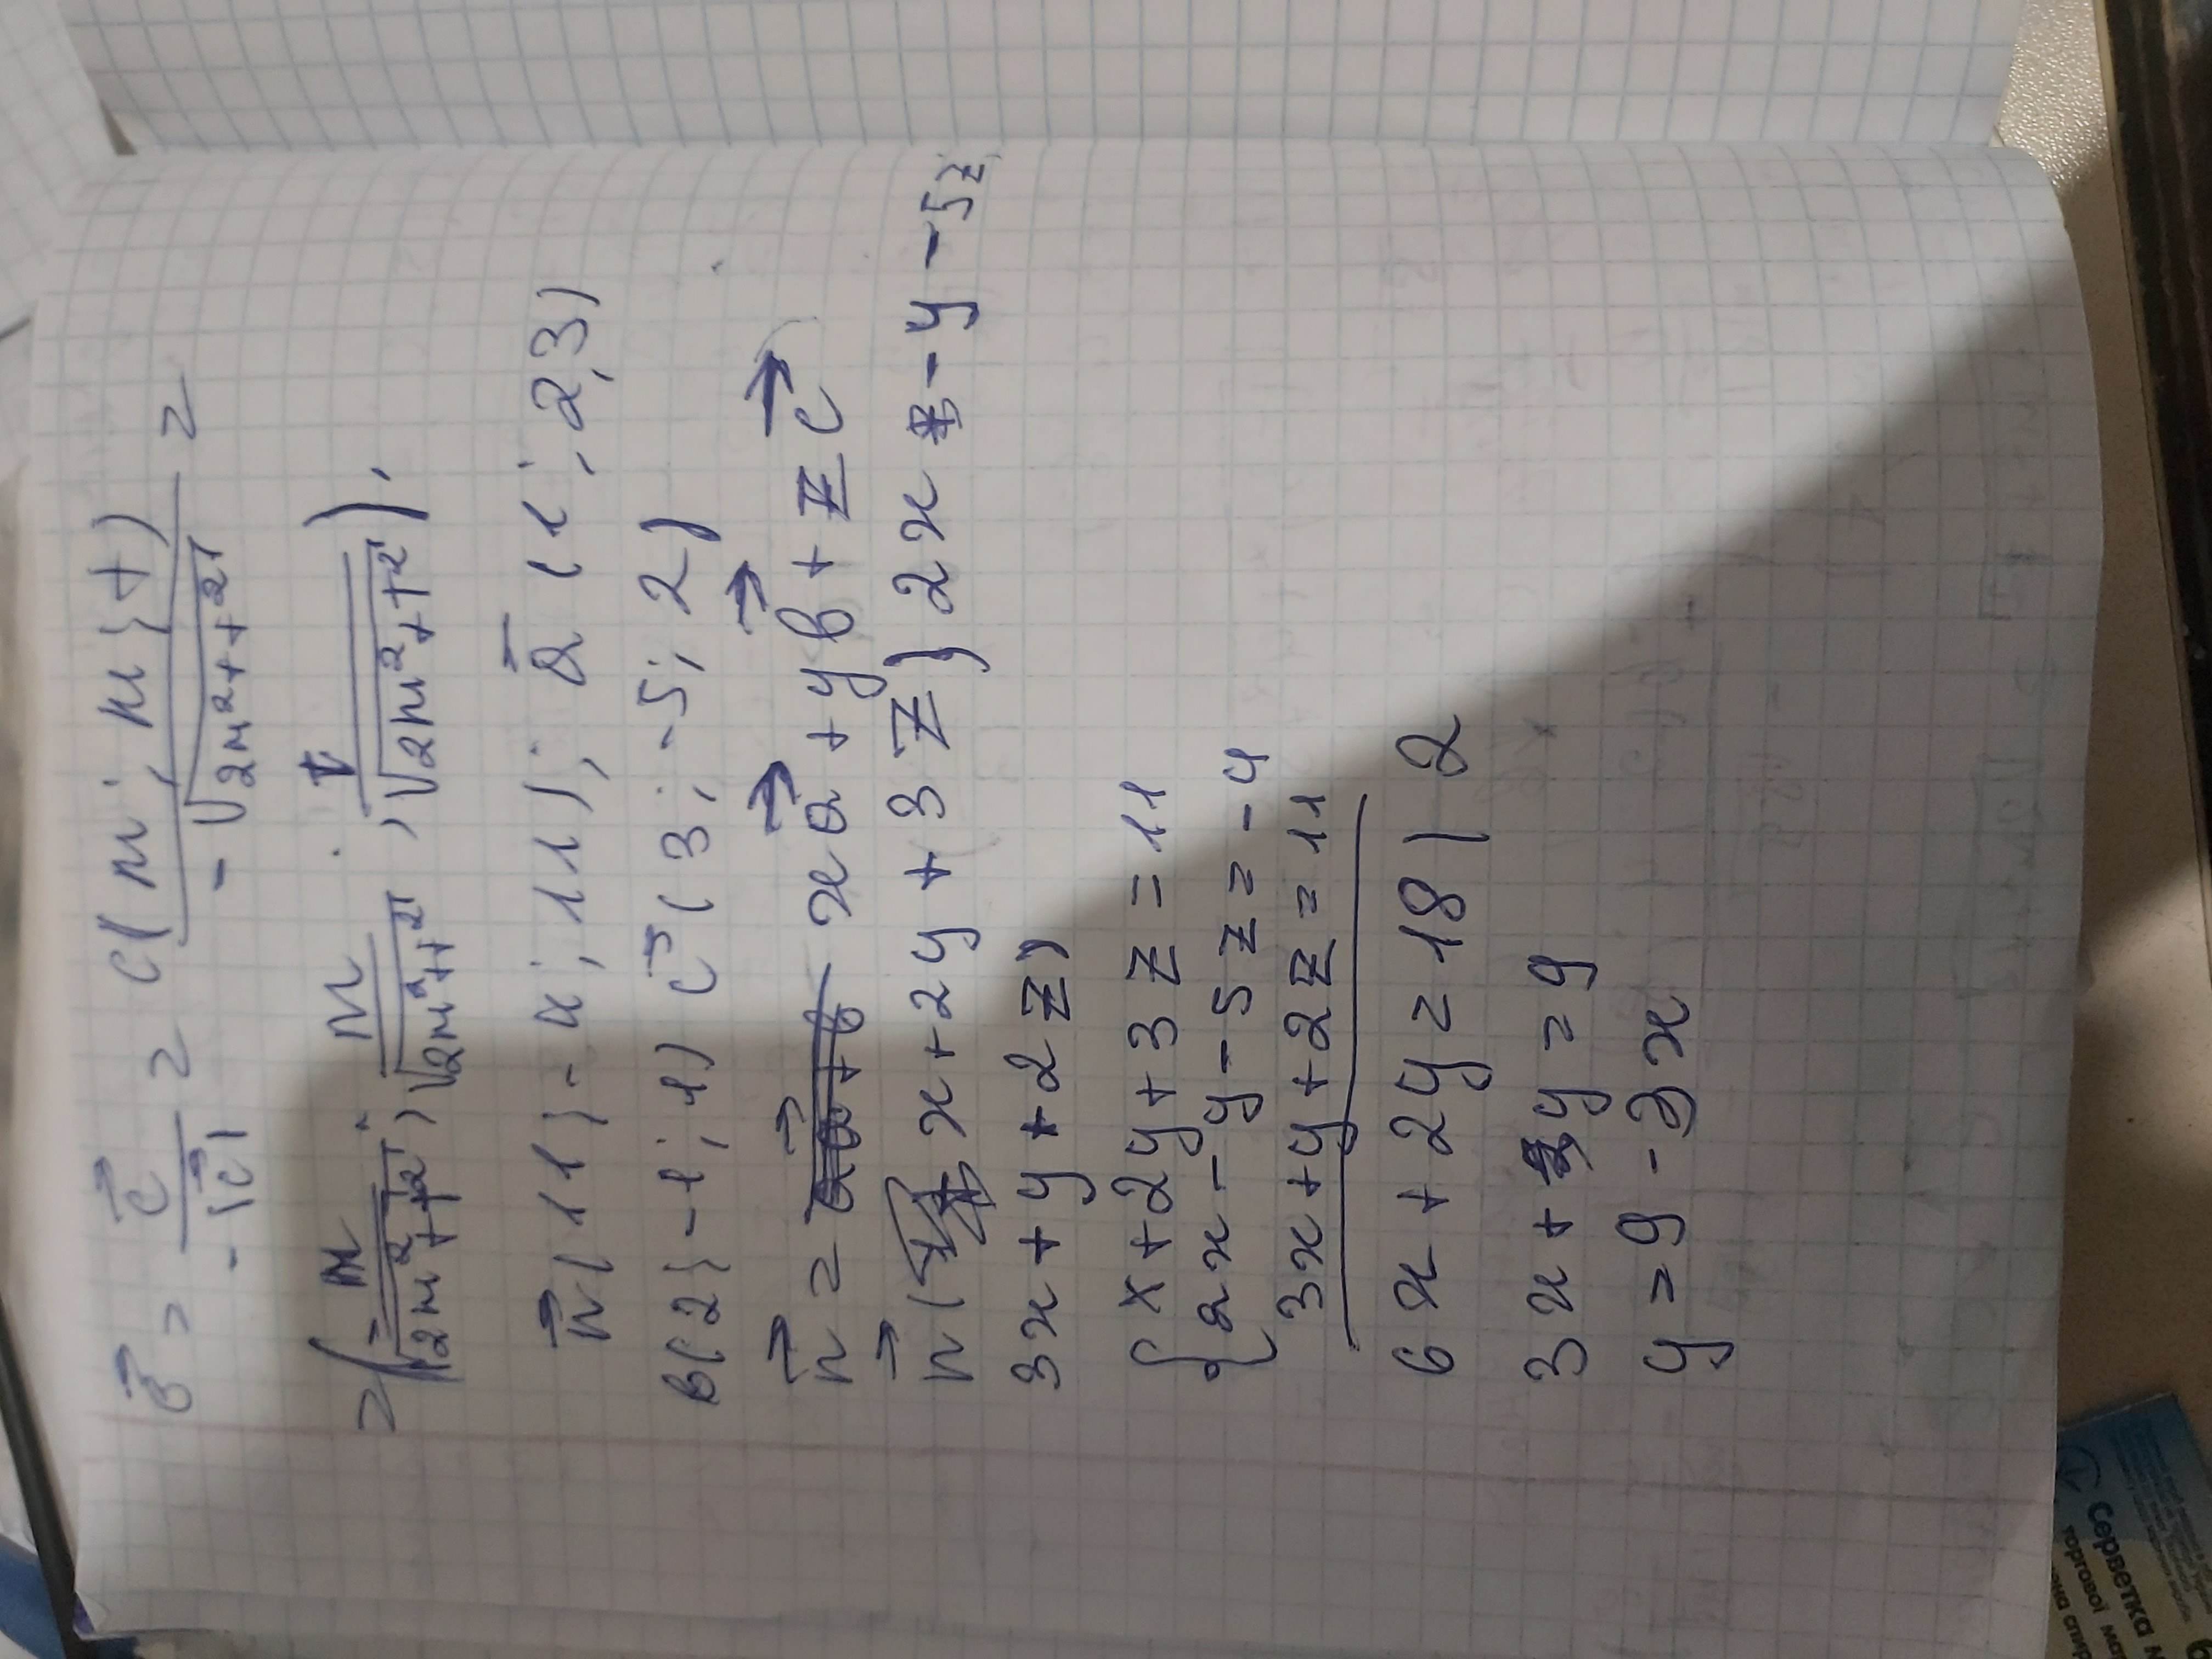 b⃗ = c⃗ / -|c⃗| = c(m; m; t) / -√(2m²+t²) =
= (m / √(2m²+t²), m / √(2m²+t²), t / √(2m²+t²)).
n⃗ (11; -4; 11); a⃗ (1; 2; 3)
b(2; -1; 1) c⃗ (3; -5; 2)
n⃗ = xa⃗ + yb⃗ + zc⃗
n⃗ ( x+2y+3z; 2x-y-5z
3x+y+2z)
{ x+2y+3z=11
2x-y-5z=-4
3x+y+2z=11
6x+2y=18 | 2
3x+y=9
y=9-3x
Серветка
торгової